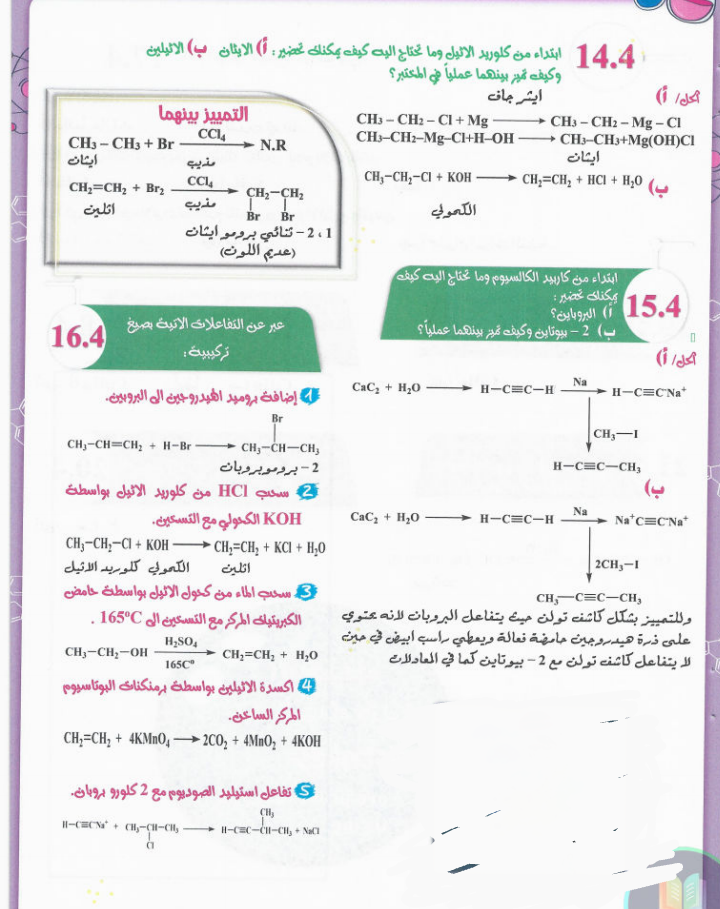 14.4
ابتداء من كلوريد الاثيل وما تحتاج اليه كيف يمكنك تحضير : أ) الايثان ب) الاثيلين
وكيف تميز بينهما عملياً في المختبر؟
الحل/ أ)
ايثر جاف
CH₃ – CH₂ – Cl + Mg ⟶ CH₃ – CH₂ – Mg – Cl
CH₃–CH₂–Mg–Cl+H–OH ⟶ CH₃–CH₃+Mg(OH)Cl
ايثان
ب)
CH₃–CH₂–Cl + KOH ⟶ CH₂=CH₂ + HCl + H₂O
الكحولي
التمييز بينهما
CCl₄
CH₃ – CH₃ + Br ⟶ N.R
ايثان مذيب
CCl₄
CH₂=CH₂ + Br₂ ⟶ CH₂–CH₂
اثلين مذيب Br Br
1 ، 2 – ثنائي برومو ايثان
(عديم اللون)
15.4
ابتداء من كاربيد الكالسيوم وما تحتاج اليه كيف
يمكنك تحضير :
أ) البروباين؟
ب) 2 – بيوتاين وكيف تميز بينهما عملياً؟
الحل/ أ)
Na
CaC₂ + H₂O ⟶ H–C≡C–H ⟶ H–C≡C⁻Na⁺
CH₃–I
H–C≡C–CH₃
ب)
Na
CaC₂ + H₂O ⟶ H–C≡C–H ⟶ Na⁺C≡C⁻Na⁺
2CH₃–I
CH₃–C≡C–CH₃
وللتمييز بشكل كاشف تولن حيث يتفاعل البروبان لانه يحتوي
على ذرة هيدروجين حامضية فعالة ويعطي راسب ابيض في حين
لا يتفاعل كاشف تولن مع 2 – بيوتاين كما في المعادلات
16.4
عبر عن التفاعلات الاتية بصيغ
تركيبية :
1 إضافة بروميد الهيدروجين الى البروبين.
Br
CH₃–CH=CH₂ + H–Br ⟶ CH₃–CH–CH₃
2 – بروموبروبان
2 سحب HCl من كلوريد الاثيل بواسطة
KOH الكحولي مع التسخين.
CH₃–CH₂–Cl + KOH ⟶ CH₂=CH₂ + KCl + H₂O
اثلين الكحولي كلوريد الاثيل
3 سحب الماء من كحول الاثيل بواسطة حامض
الكبريتيك المركز مع التسخين الى 165°C .
H₂SO₄
CH₃–CH₂–OH ⟶ CH₂=CH₂ + H₂O
165C°
4 اكسدة الاثيلين بواسطة برمنكنات البوتاسيوم
المركز الساخن.
CH₂=CH₂ + 4KMnO₄ ⟶ 2CO₂ + 4MnO₂ + 4KOH
5 تفاعل استيليد الصوديوم مع 2 كلورو بروبان.
CH₃
H–C≡C⁻Na⁺ + CH₃–CH–CH₃ ⟶ H–C≡C–CH–CH₃ + NaCl
Cl